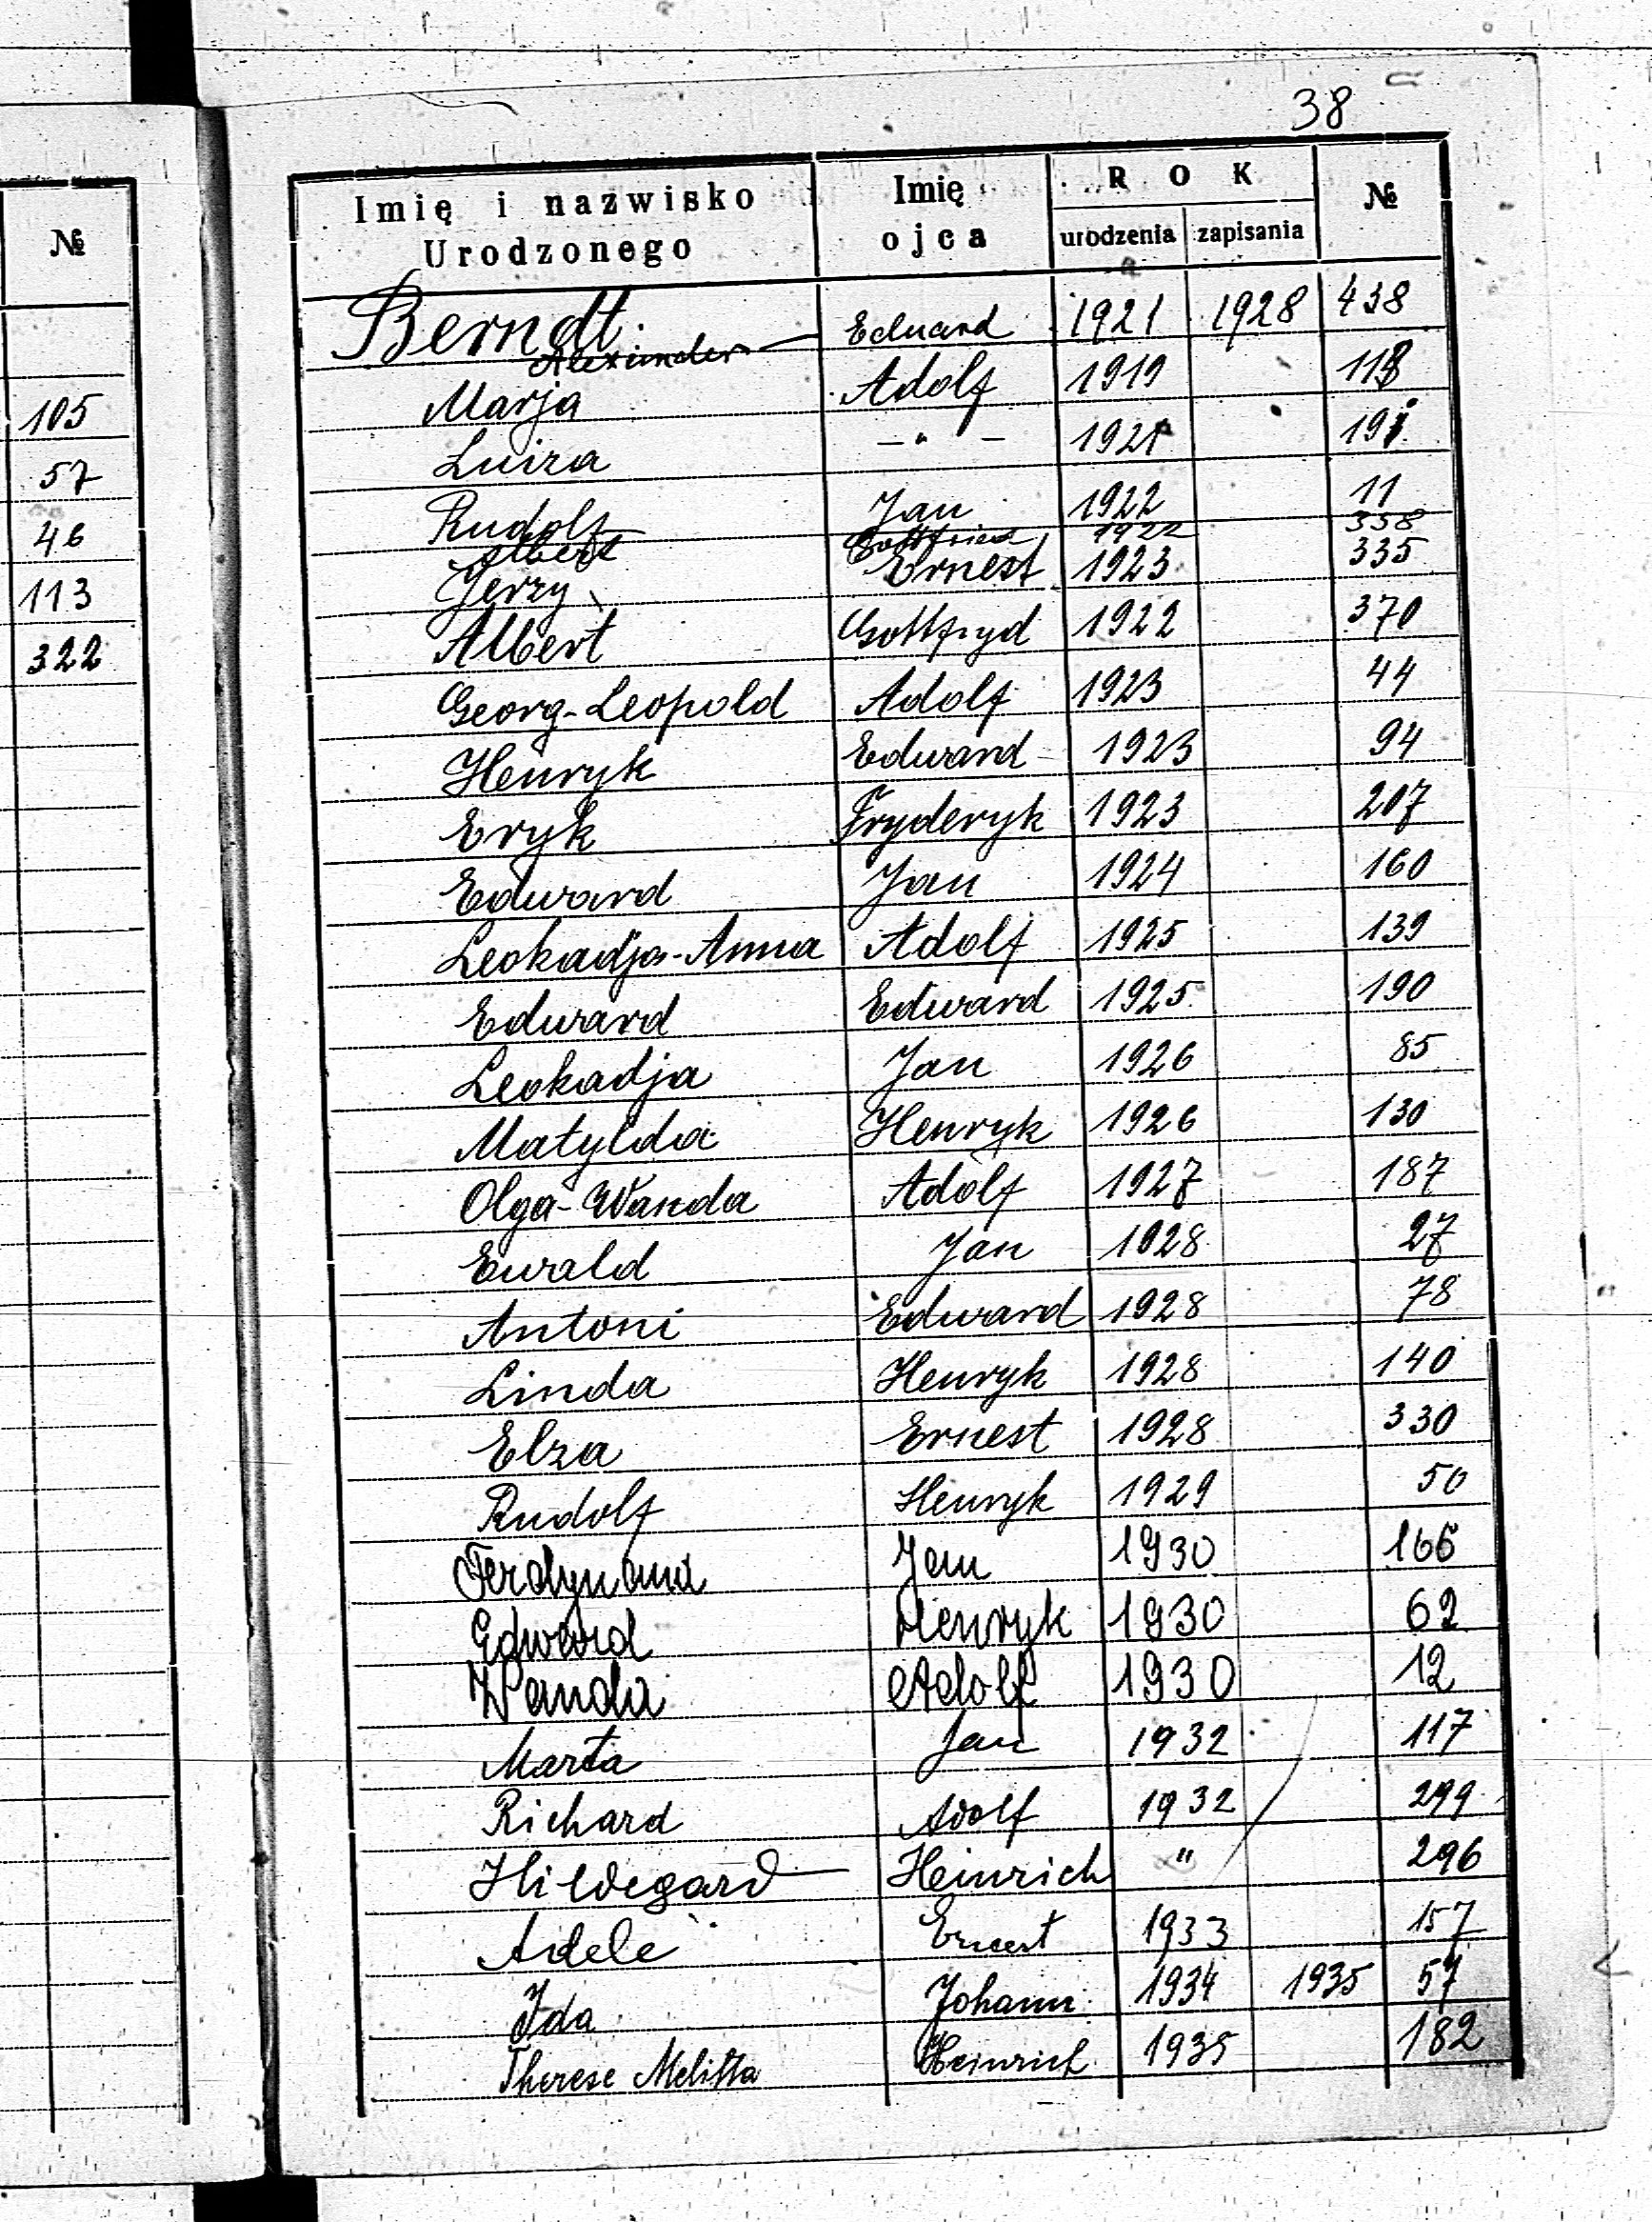 38
№
105
57
46
113
322
Imię i nazwisko Urodzonego | Imię ojca | ROK urodzenia | zapisania | №
Berndt.
Alexander — Eduard 1921 1928 438
Marja Adolf 1919 118
Luiza — " — 1921 191
Rudolf Jan 1922 11
Albert Gottfried 1922 338
Jerzy Ernest 1923 335
Albert Gottfryd 1922 370
Georg-Leopold Adolf 1923 44
Henryk Edward 1923 94
Eryk Fryderyk 1923 207
Edward Jan 1924 160
Leokadja-Anna Adolf 1925 139
Edward Edward 1925 190
Leokadja Jan 1926 85
Matylda Henryk 1926 130
Olga-Wanda Adolf 1927 187
Ewald Jan 1928 27
Antoni Edward 1928 78
Linda Henryk 1928 140
Elza Ernest 1928 330
Rudolf Henryk 1929 50
Ferdynand Jan 1930 166
Edward Henryk 1930 62
Wanda Adolf 1930 12
Marta Jan 1932 117
Richard Adolf 1932 299
Hildegard — Heinrich " 296
Adele Ernest 1933 157
Ida Johann 1934 1935 57
Therese Melitta Heinrich 1935 182